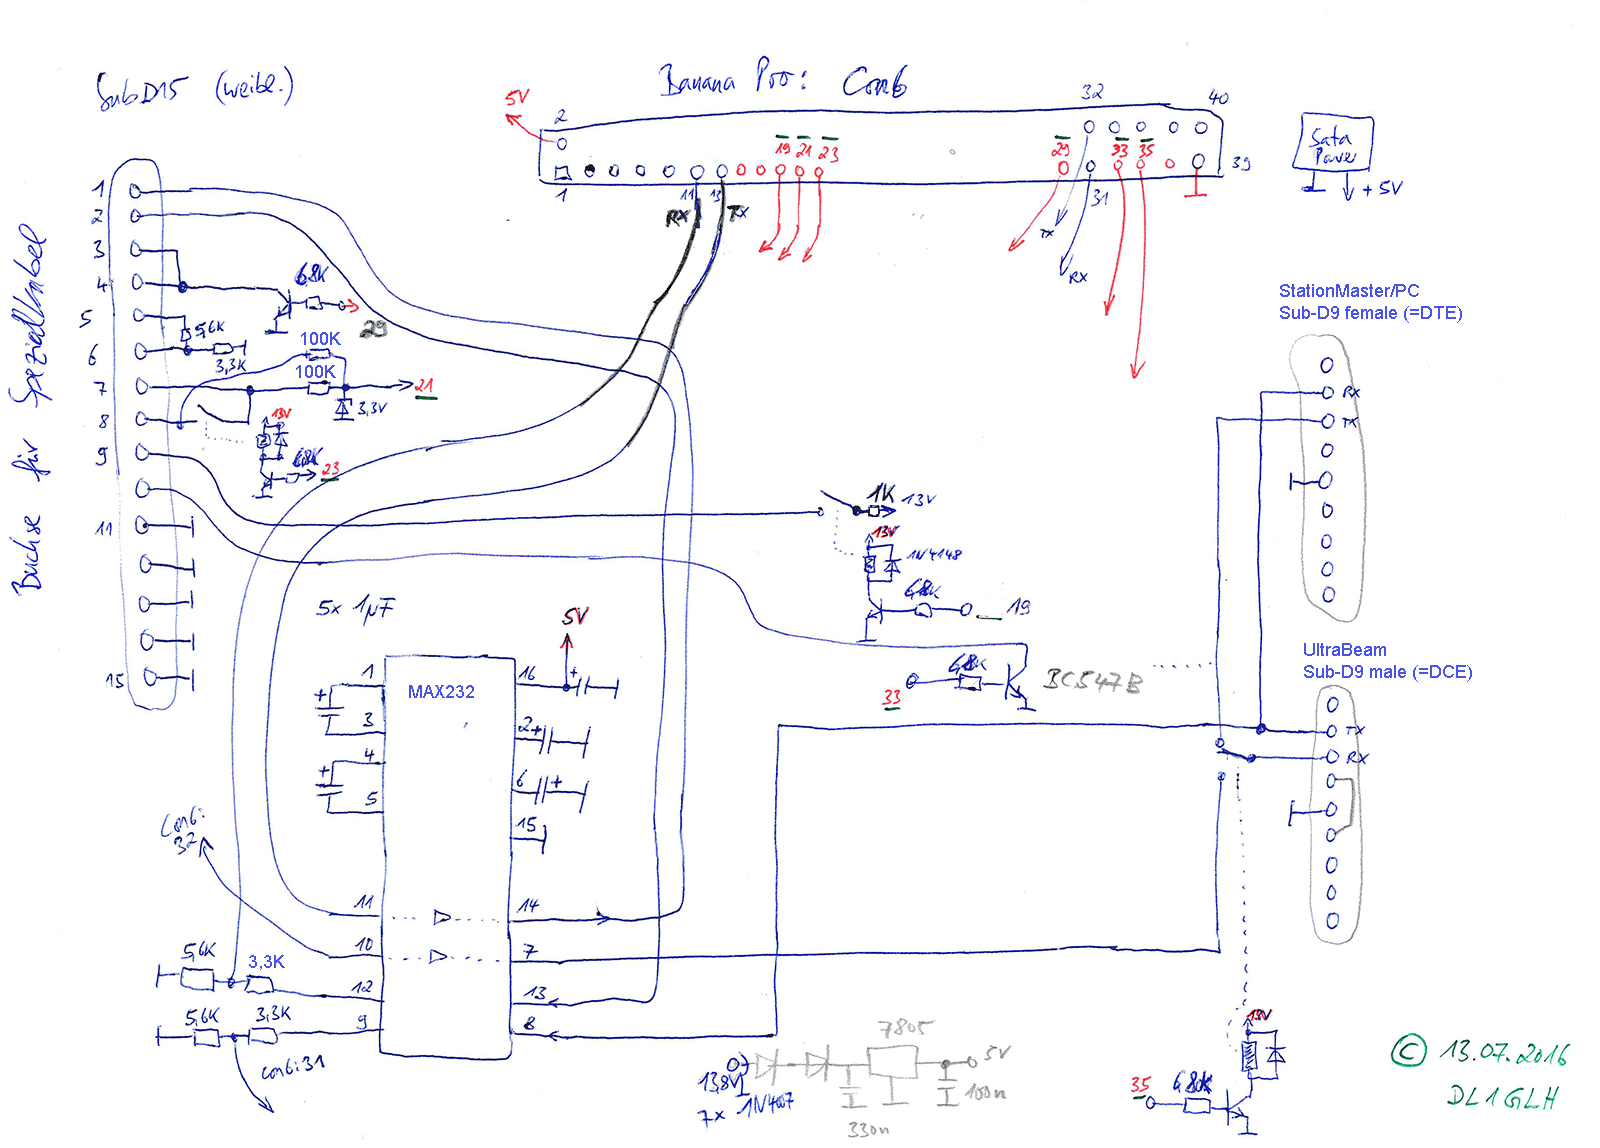 SubD15 (weibl.)
Banana Pro: Con6
5V
2
32
40
19
21
23
29
33
35
1
11
13
31
39
RX
TX
TX
RX
Sata
Power
+5V
Buchse für Spezialkabel
1
2
3
4
5
6
7
8
9
11
15
6,8K
29
5,6K
3,3K
100K
100K
21
3,3V
13V
6,8K
23
StationMaster/PC
Sub-D9 female (=DTE)
RX
TX
1K
13V
13V
1N4148
6,8K
19
6,8K
33
BC547B
UltraBeam
Sub-D9 male (=DCE)
TX
RX
5x 1µF
5V
MAX232
1
3
4
5
11
10
12
9
16
2
6
15
14
7
13
8
+
+
+
+
+
Con6:
32
5,6K
3,3K
5,6K
3,3K
con6:31
13,8V
7x 1N4007
7805
5V
100n
330n
13V
35
6,80K
© 13.07.2016
DL1GLH